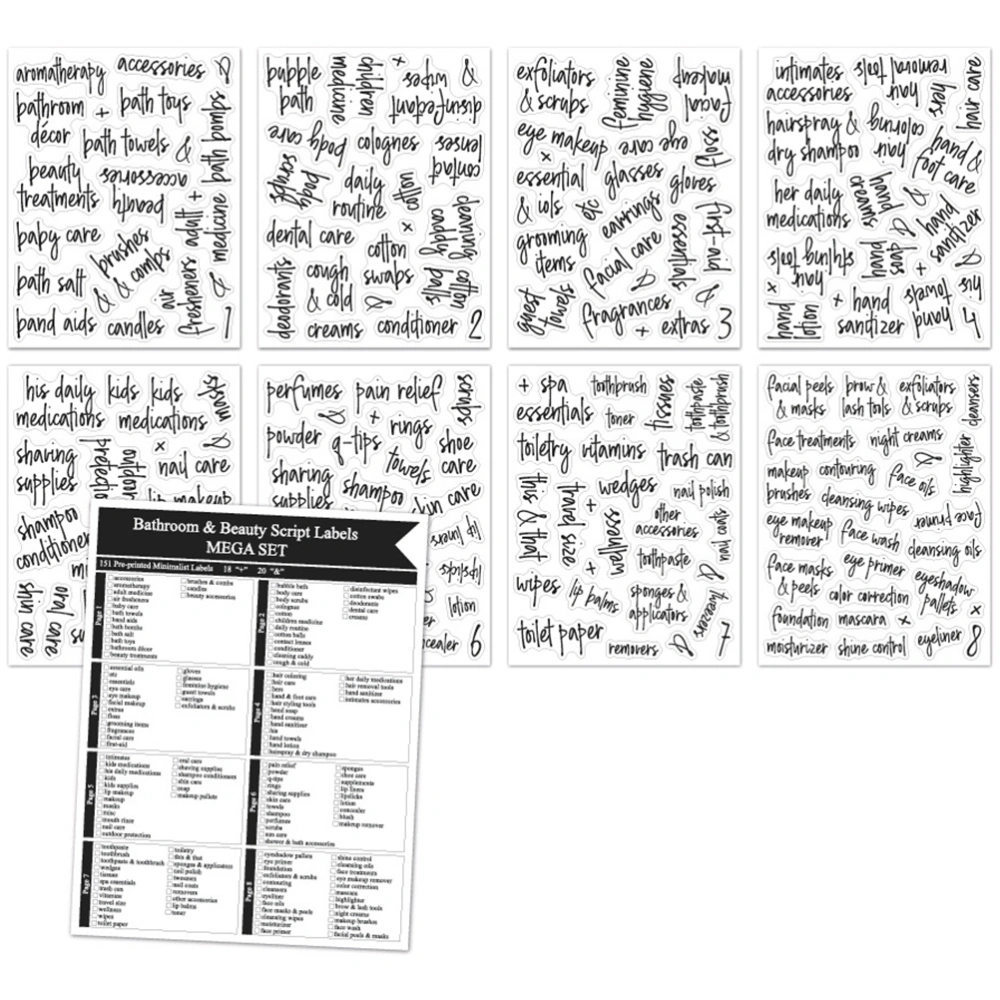 aromatherapy
accessories
&
bathroom
décor
+
bath toys
bath bombs
bath towels
&
beauty
treatments
accessories
beauty
adult
medicine
+
baby care
brushes
& combs
bath salt
&
air
fresheners
&
band aids
candles
1
bubble
bath
children
medicine
+
wipes
&
disinfectant
body care
colognes
contact
lenses
body
scrubs
daily
routine
cotton
cleaning
caddy
dental care
×
cotton
swabs
cotton
balls
deodorants
cough
& cold
&
creams
conditioner
2
exfoliators
& scrubs
feminine
hygiene
facial
makeup
eye makeup
eye care
floss
×
essential
& iols
glasses
gloves
etc
earrings
essentials
first-aid
grooming
items
facial care
&
guest
towels
fragrances
+
extras
3
intimates
accessories
hair
removal tools
hers
hair care
hairspray &
dry shampoo
hair
coloring
hand &
foot care
her daily
medications
hand
creams
&
hand
sanitizer
hair
styling tools
hand
soap
+
&
his
×
hand
lotion
+
hand
sanitizer
hand
towels
4
his daily
medications
kids
kids
medications
masks
&
sharing
supplies
outdoor
×
nail care
lip makeup
shampoo
conditioner
skin care
oral care
perfumes
pain relief
scrubs
&
+
rings
powder
q-tips
shoe
care
sharing
supplies
towels
shampoo
skin care
lip liners
lipsticks
lotion
6
+ spa
essentials
toothbrush
toner
tissues
toothpaste
& toothbrush
toiletry
vitamins
trash can
this & that
travel size
+
wedges
nail polish
wellness
other
accessories
nail coats
+
toothpaste
&
wipes
lip balms
sponges &
applicators
tweezers
toilet paper
removers
&
7
facial peels
& masks
brow &
lash tools
exfoliators
& scrubs
cleansers
face treatments
night creams
highlighter
makeup
brushes
contouring
face oils
cleansing wipes
face primer
eye makeup
remover
face wash
cleansing oils
face masks
& peels
eye primer
eyeshadow
pallets
color correction
×
foundation
mascara
×
moisturizer
shine control
eyeliner
8
Bathroom & Beauty Script Labels
MEGA SET
151 Pre-printed Minimalist Labels 18 "+" 20 "&"
Page 1
accessories
aromatherapy
adult medicine
air fresheners
baby care
bath towels
band aids
bath bombs
bath salt
bath toys
bathroom décor
beauty treatments
brushes & combs
candles
beauty accessories
Page 2
bubble bath
body care
body scrubs
colognes
cotton
children medicine
daily routine
cotton balls
contact lenses
conditioner
cleaning caddy
cough & cold
disinfectant wipes
cotton swabs
deodorants
dental care
creams
Page 3
essential oils
etc
essentials
eye care
eye makeup
facial makeup
extras
floss
grooming items
fragrances
facial care
first-aid
gloves
glasses
feminine hygiene
guest towels
earrings
exfoliators & scrubs
Page 4
hair coloring
hair care
hers
hand & foot care
hair styling tools
hand soap
hand creams
hand sanitizer
his
hand towels
hand lotion
hairspray & dry shampoo
her daily medications
hair removal tools
hand sanitizer
intimates accessories
Page 5
intimates
kids medications
his daily medications
kids
kids supplies
lip makeup
makeup
masks
misc
mouth rinse
nail care
outdoor protection
oral care
shaving supplies
shampoo conditioners
skin care
soap
makeup pallets
Page 6
pain relief
powder
q-tips
rings
sharing supplies
skin care
towels
shampoo
perfumes
scrubs
sun care
shower & bath accessories
sponges
shoe care
supplements
lip liners
lipsticks
lotion
concealer
blush
makeup remover
Page 7
toothpaste
toothbrush
toothpaste & toothbrush
wedges
tissues
spa essentials
trash can
vitamins
travel size
wellness
wipes
toilet paper
toiletry
this & that
sponges & applicators
nail polish
tweezers
nail coats
removers
other accessories
lip balms
toner
Page 8
eyeshadow pallets
eye primer
foundation
exfoliators & scrubs
contouring
cleansers
eyeliner
face oils
face masks & peels
cleansing wipes
moisturizer
face primer
shine control
cleansing oils
face treatments
eye makeup remover
color correction
mascara
highlighter
brow & lash tools
night creams
makeup brushes
face wash
facial peels & masks